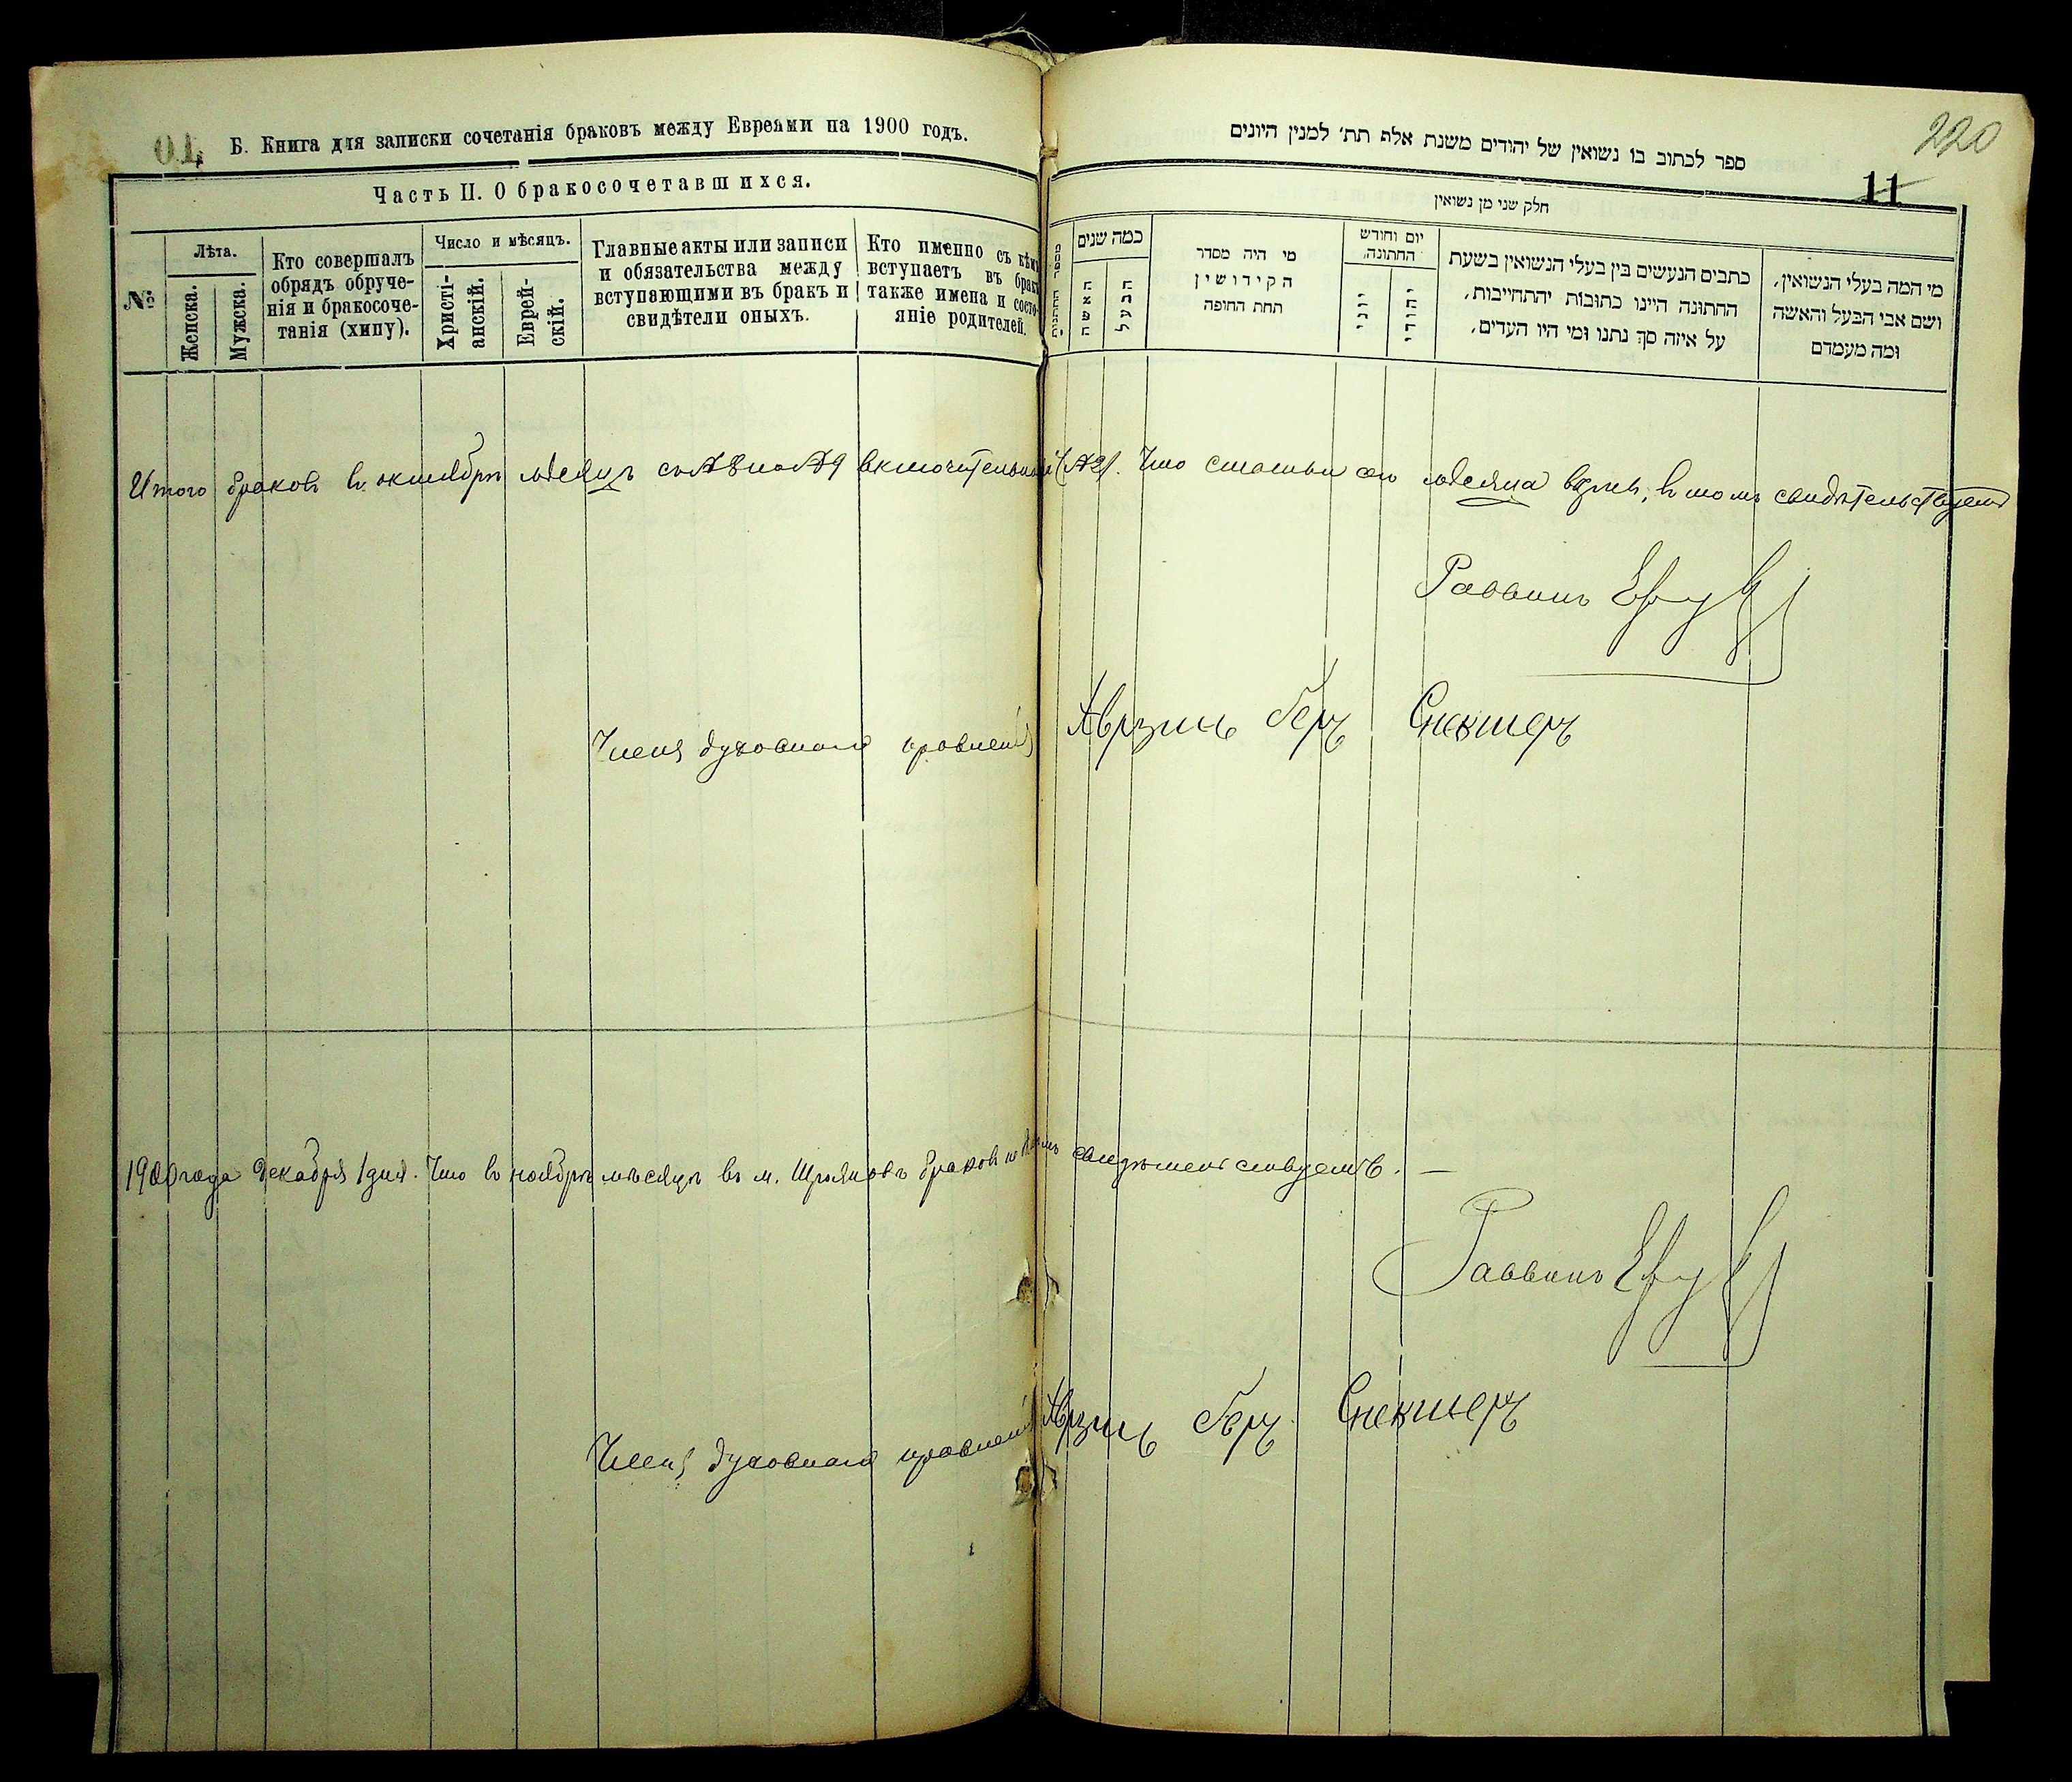 Б. Книга для записки сочетанія браковъ между Евреями на 1900 годъ.
Часть II. О бракосочетавшихся.
№
Лѣта.
Женска.
Мужска.
Кто совершалъ
обрядъ обруче-
нія и бракосоче-
танія (хипу).
Число и мѣсяцъ.
Христі-
анскій.
Еврей-
скій.
Главные акты или записи
и обязательства между
вступающими въ бракъ и
свидѣтели оныхъ.
Кто именно съ кѣмъ
вступаетъ въ бракъ
также имена и состо-
яніе родителей.
220
ספר לכתוב בו נשואין של יהודים משנת אלף תת׳ למנין היונים
11
חלק שני מן נשואין
מי המה בעלי הנשואין,
ושם אבי הבעל והאשה
ומה מעמדם
כתבים הנעשים בין בעלי הנשואין בשעת
החתונה היינו כתובות יהתחייבות,
על איזה סך נתנו ומי היו העדים,
יום וחודש
החתונה,
יהודי
יוני
מי היה מסדר
הקידושין
תחת החופה
כמה שנים
הבעל
האשה
Итого браковъ въ октябрѣ мѣсяцѣ съ №8 по №9 включительно (№2). Что статьи сего мѣсяца вѣрны, въ томъ свидѣтельствуемъ
Раввинъ
Члены духовнаго правленія Герц Спектеръ
1900 года декабря 1 дня. Что въ ноябрѣ мѣсяцѣ въ м. браковъ не свидѣтельствуемъ. —
Раввинъ
Члены духовнаго правленія Герц Спектеръ